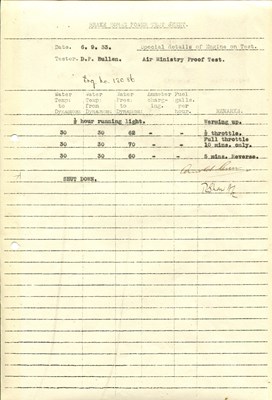 Date. 6. 9. 33. Special details of Engine on Test.
Tester. D.F. Bullen. Air Ministry Proof Test.
Eng. No.
Water Temp: to Dynamom Water Temp: from Dynamom Water Press: to Dynamom Ammeter charg- ing. Fuel galls. per hour. REMARKS.
½ hour running light. Warming up.
30 30 62 - - ½ throttle.
30 30 70 - - Full throttle 10 mins. only.
30 30 60 - - 5 mins. Reverse.
SHUT DOWN.